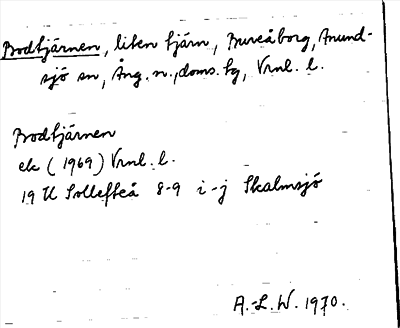 Bodtjärnen, liten tjärn, Bureåborg, Anund-
sjö sn, Ång. n., doms. fg, Vrnl. l.
Bodtjärnen
ek (1969) Vrnl. l.
19 H Sollefteå 8-9 i-j Skalmsjö
A.-L. W. 1970.